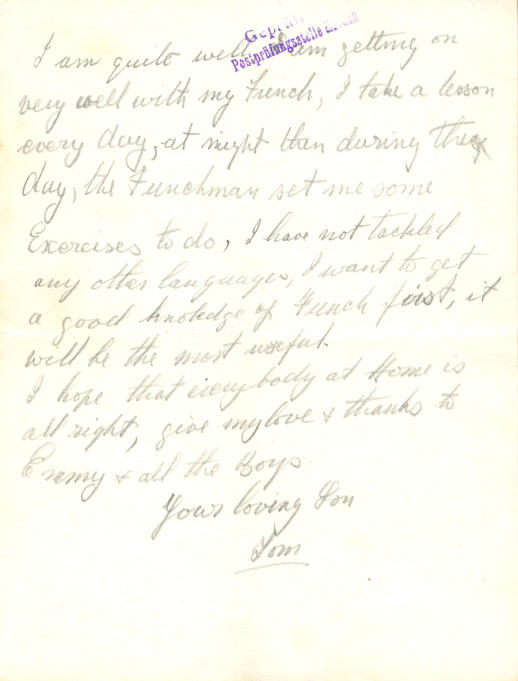 Geprüft
Postprüfungsstelle
I am quite well, I am getting on
very well with my French, I take a lesson
every day, at night than during the
day, the Frenchman set me some
Exercises to do, I have not tackled
any other languages, I want to get
a good knoledge of French first, it
will be the most useful.
I hope that everybody at Home is
all right, give my love & thanks to
Emmy & all the Boys
Yours loving Son
Tom